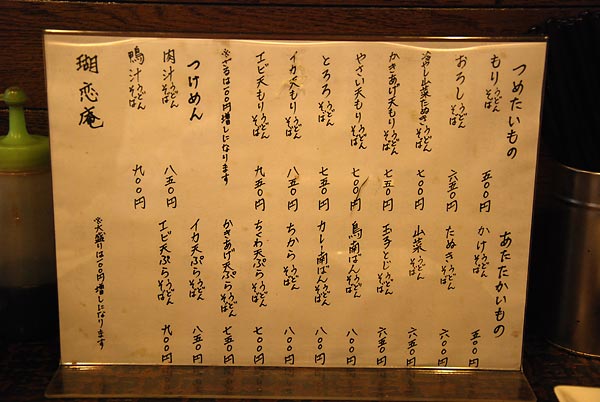 つめたいもの
もり うどん そば 五〇〇円
おろし うどん そば 六五〇円
冷やし山菜たぬき うどん そば 七〇〇円
かきあげ天もり うどん そば 七五〇円
やさい天もり うどん そば 七〇〇円
とろろ うどん そば 七五〇円
イカ天もり うどん そば 八五〇円
エビ天もり うどん そば 九五〇円
※ざるは一〇〇円増しになります
つけめん
肉汁 うどん そば 八五〇円
鴨汁 うどん そば 九〇〇円
瑚恋庵
あたたかいもの
かけ うどん そば 五〇〇円
たぬき うどん そば 六〇〇円
山菜 うどん そば 六五〇円
玉子とじ うどん そば 六五〇円
鳥南ばん うどん そば 八〇〇円
カレー南ばん うどん そば 八〇〇円
ちから うどん そば 八〇〇円
ちくわ天ぷら うどん そば 七〇〇円
かきあげ天ぷら うどん そば 七五〇円
イカ天ぷら うどん そば 八五〇円
エビ天ぷら うどん そば 九〇〇円
※大盛りは一〇〇円増しになります